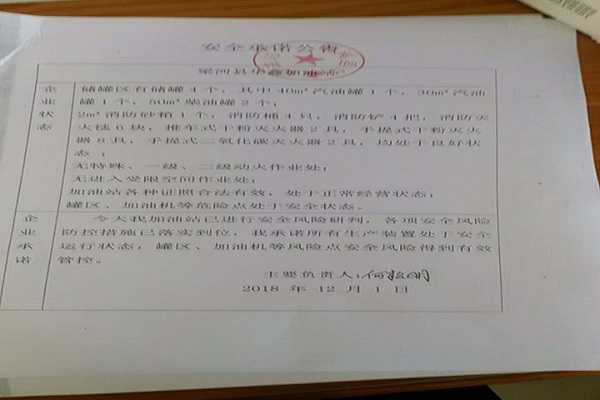 安全承诺公告
梁河县华鑫加油站
企业状态
储罐区有储罐4个，其中40m³汽油罐1个，30m³汽油
罐1个，50m³柴油罐2个；
2m³消防砂箱1个，消防桶4只，消防铲4把，消防灭
火毯6块，推车式干粉灭火器2具，手提式干粉灭火
器8具，手提式二氧化碳灭火器2具，均处于良好状
态；
无特殊、一级、二级动火作业处；
无进入受限空间作业处；
加油站各种证照合法有效，处于正常经营状态；
罐区、加油机等危险点处于安全状态。
企业承诺
今天我加油站已进行安全风险研判，各项安全风险
防控措施已落实到位，我承诺所有生产装置处于安全
运行状态，罐区、加油机等风险点安全风险得到有效
管控。
主要负责人：何 明
2018 年 12 月 1 日